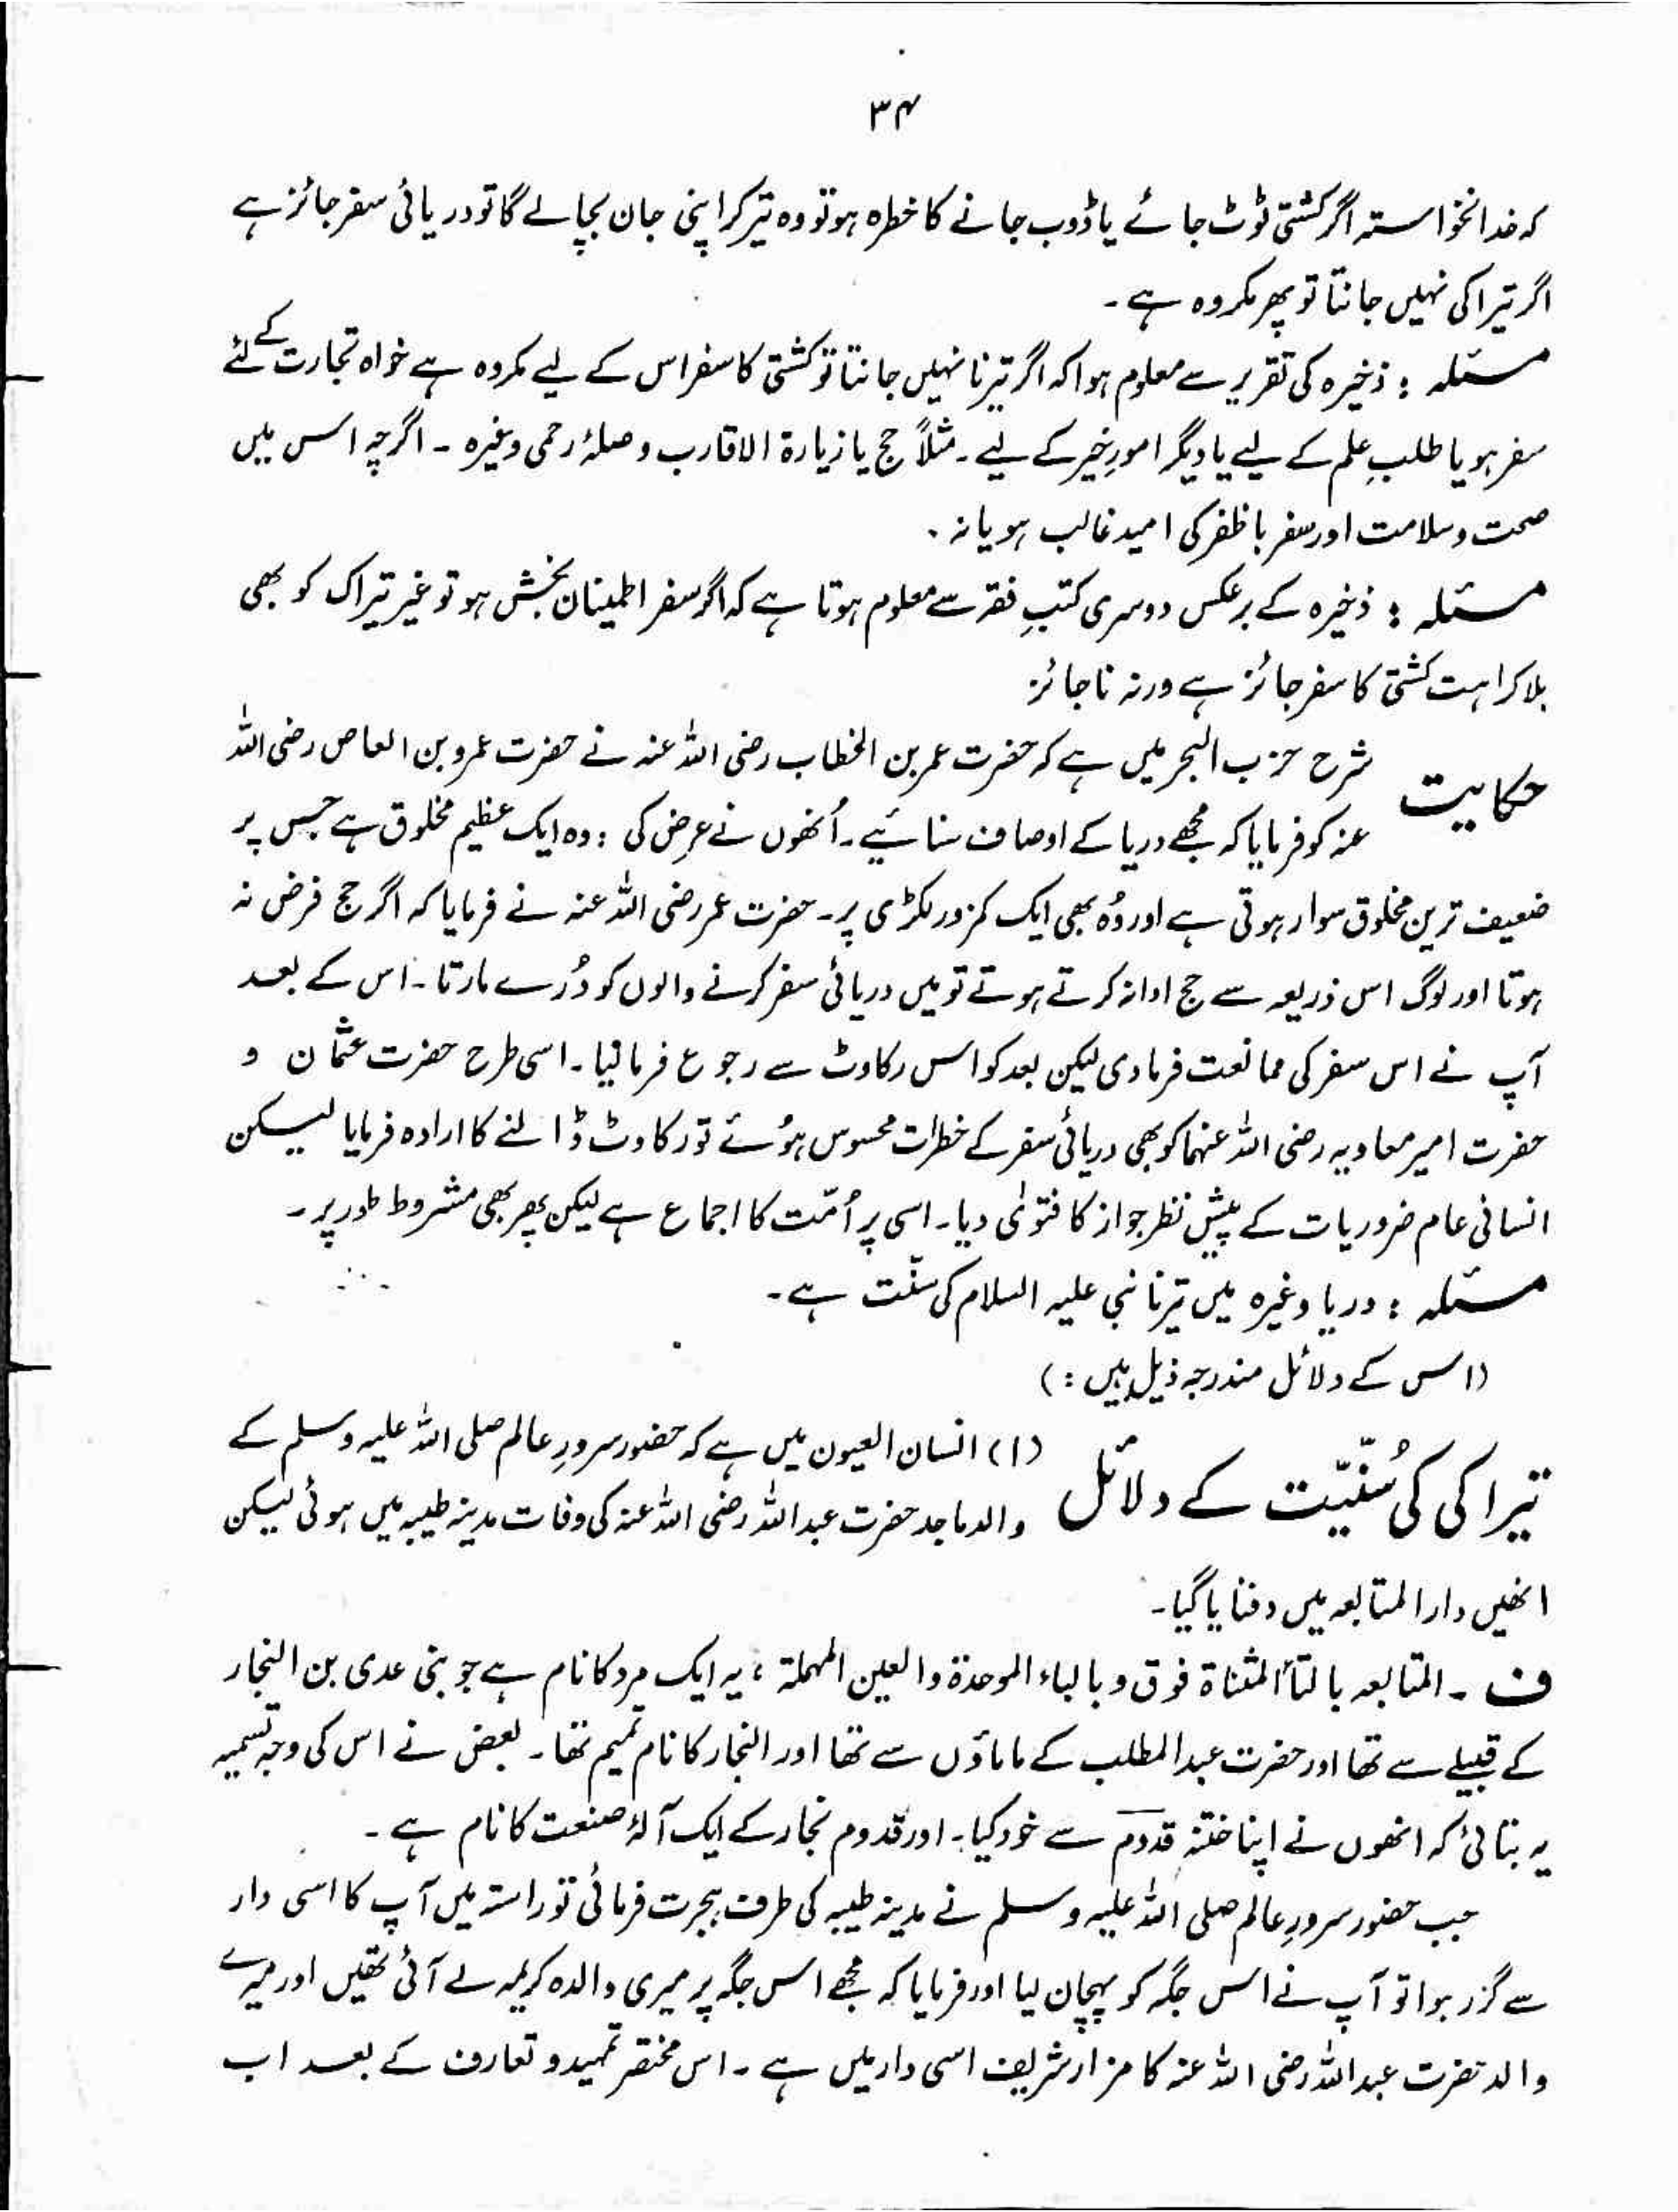 ۳۴
کہ خدانخواستہ اگر کشتی ٹوٹ جائے یا ڈوب جانے کا خطرہ ہو تو وہ تیر کر اپنی جان بچا لے گا تو دریائی سفر جائز ہے
اگر تیراکی نہیں جانتا تو پھر مکروہ ہے۔
مسئلہ : ذخیرہ کی تقریر سے معلوم ہوا کہ اگر تیرنا نہیں جانتا تو کشتی کا سفر اس کے لیے مکروہ ہے خواہ تجارت کے لئے
سفر ہو یا طلبِ علم کے لیے یا دیگر امورِ خیر کے لیے۔ مثلاً حج یا زیارۃ الاقارب و صلۂ رحمی وغیرہ ۔ اگرچہ اس میں
صحت و سلامت اور سفر باظفر کی امید غالب ہو یا نہ ۔
مسئلہ : ذخیرہ کے برعکس دوسری کتبِ فقہ سے معلوم ہوتا ہے کہ اگر سفر اطمینان بخش ہو تو غیر تیراک کو بھی
بلا کراہت کشتی کا سفر جائز ہے ورنہ ناجائز
حکایت شرح حزب البحر میں ہے کہ حضرت عمر بن الخطاب رضی اللہ عنہ نے حضرت عمرو بن العاص رضی اللہ
عنہ کو فرمایا کہ مجھے دریا کے اوصاف سنائیے۔ اُنھوں نے عرض کی : وہ ایک عظیم مخلوق ہے جس پر
ضعیف ترین مخلوق سوار ہوتی ہے اور وُہ بھی ایک کمزور لکڑی پر۔ حضرت عمر رضی اللہ عنہ نے فرمایا کہ اگر حج فرض نہ
ہوتا اور لوگ اس ذریعہ سے حج ادا نہ کرتے ہوتے تو میں دریائی سفر کرنے والوں کو دُرے مارتا۔ اس کے بعد
آپ نے اس سفر کی ممانعت فرما دی لیکن بعد کو اس رکاوٹ سے رجوع فرما لیا۔ اسی طرح حضرت عثمان و
حضرت امیر معاویہ رضی اللہ عنہما کو بھی دریائی سفر کے خطرات محسوس ہوُئے تو رکاوٹ ڈالنے کا ارادہ فرمایا لیکن
انسانی عام ضروریات کے پیشِ نظر جواز کا فتوٰی دیا۔ اسی پر اُمّت کا اجماع ہے لیکن پھر بھی مشروط طور پر۔
مسئلہ : دریا وغیرہ میں تیرنا نبی علیہ السلام کی سنّت ہے۔
(اس کے دلائل مندرجہ ذیل ہیں :)
تیراکی کی سُنّیّت کے دلائل (۱) انسان العیون میں ہے کہ حضور سرورِ عالم صلی اللہ علیہ وسلم کے
والد ماجد حضرت عبداللہ رضی اللہ عنہ کی وفات مدینہ طیبہ میں ہوئی لیکن
انھیں دار المتابعہ میں دفنایا گیا۔
ف ۔ المتابعہ بالتأ المثناۃ فوق و بالباء الموحدۃ والعین المہملۃ ، یہ ایک مرد کا نام ہے جو بنی عدی بن النجار
کے قبیلے سے تھا اور حضرت عبدالمطلب کے ماماؤں سے تھا اور النجار کا نام تمیم تھا۔ بعض نے اس کی وجہ تسمیہ
یہ بتائی کہ انھوں نے اپنا ختنہ قدوم سے خود کیا۔ اور قدوم نجار کے ایک آلۂ صنعت کا نام ہے ۔
جب حضور سرورِ عالم صلی اللہ علیہ وسلم نے مدینہ طیبہ کی طرف ہجرت فرمائی تو راستہ میں آپ کا اسی دار
سے گزر ہوا تو آپ نے اس جگہ کو پہچان لیا اور فرمایا کہ مجھے اس جگہ پر میری والدہ کریمہ لے آئی تھیں اور میرے
والد حضرت عبداللہ رضی اللہ عنہ کا مزار شریف اسی دار میں ہے ۔ اس مختصر تمہید و تعارف کے بعد اب